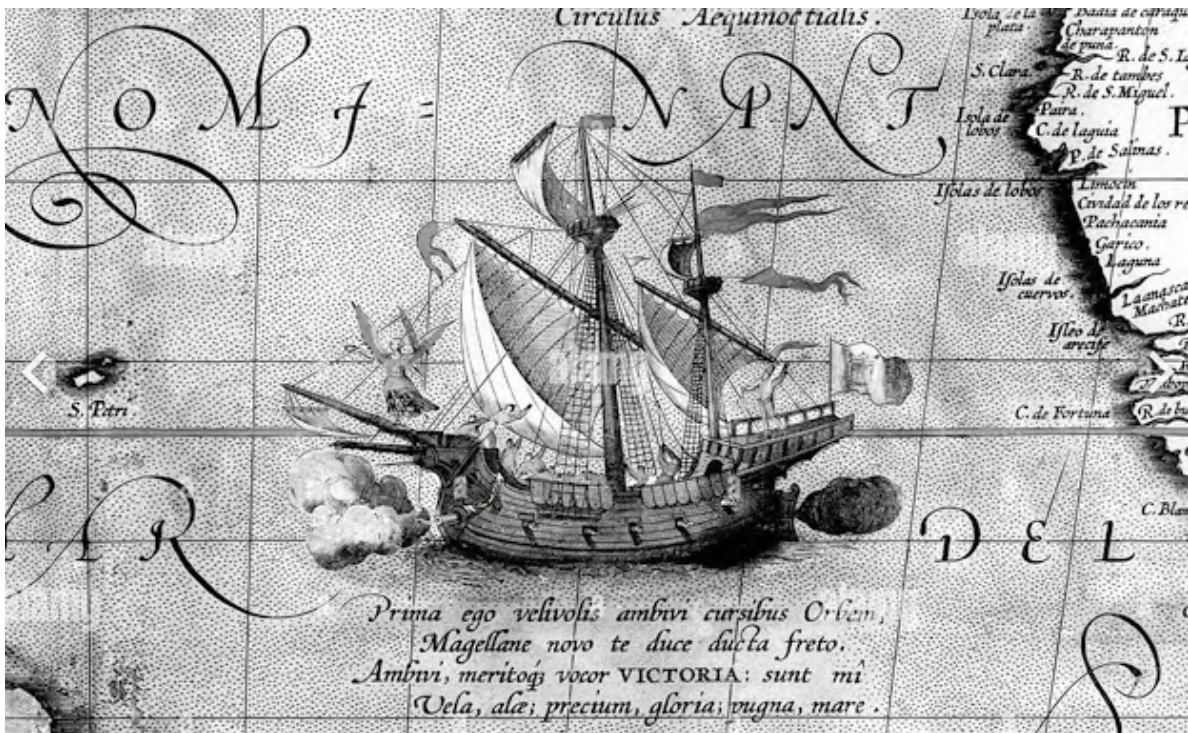 Circulus Aequinoctialis.
NOMI = NANT
Isola de la
plata.
Badia de caraqu
Charapanton
de puna.
R. de S. Ia
S. Clara.
R. de tambes
R. de S. Miguel.
Isola de
lobos
Paira.
C. de laguia
P. de Salinas.
P
Isolas de lobos
Limocin
Cividad de los re
Pachacania
Garico.
Laguna
Isolas de
cuervos.
Laanasca
Machate
R.
Isleo de
arecife
S. Petri
C. de Fortuna
R. de bu
C. Blan
AR DEL
Prima ego velivolis ambivi cursibus Orbem,
Magellane novo te duce ducta freto.
Ambivi, meritoq́; vocor VICTORIA: sunt mî
Vela, alæ; precium, gloria; pugna, mare.